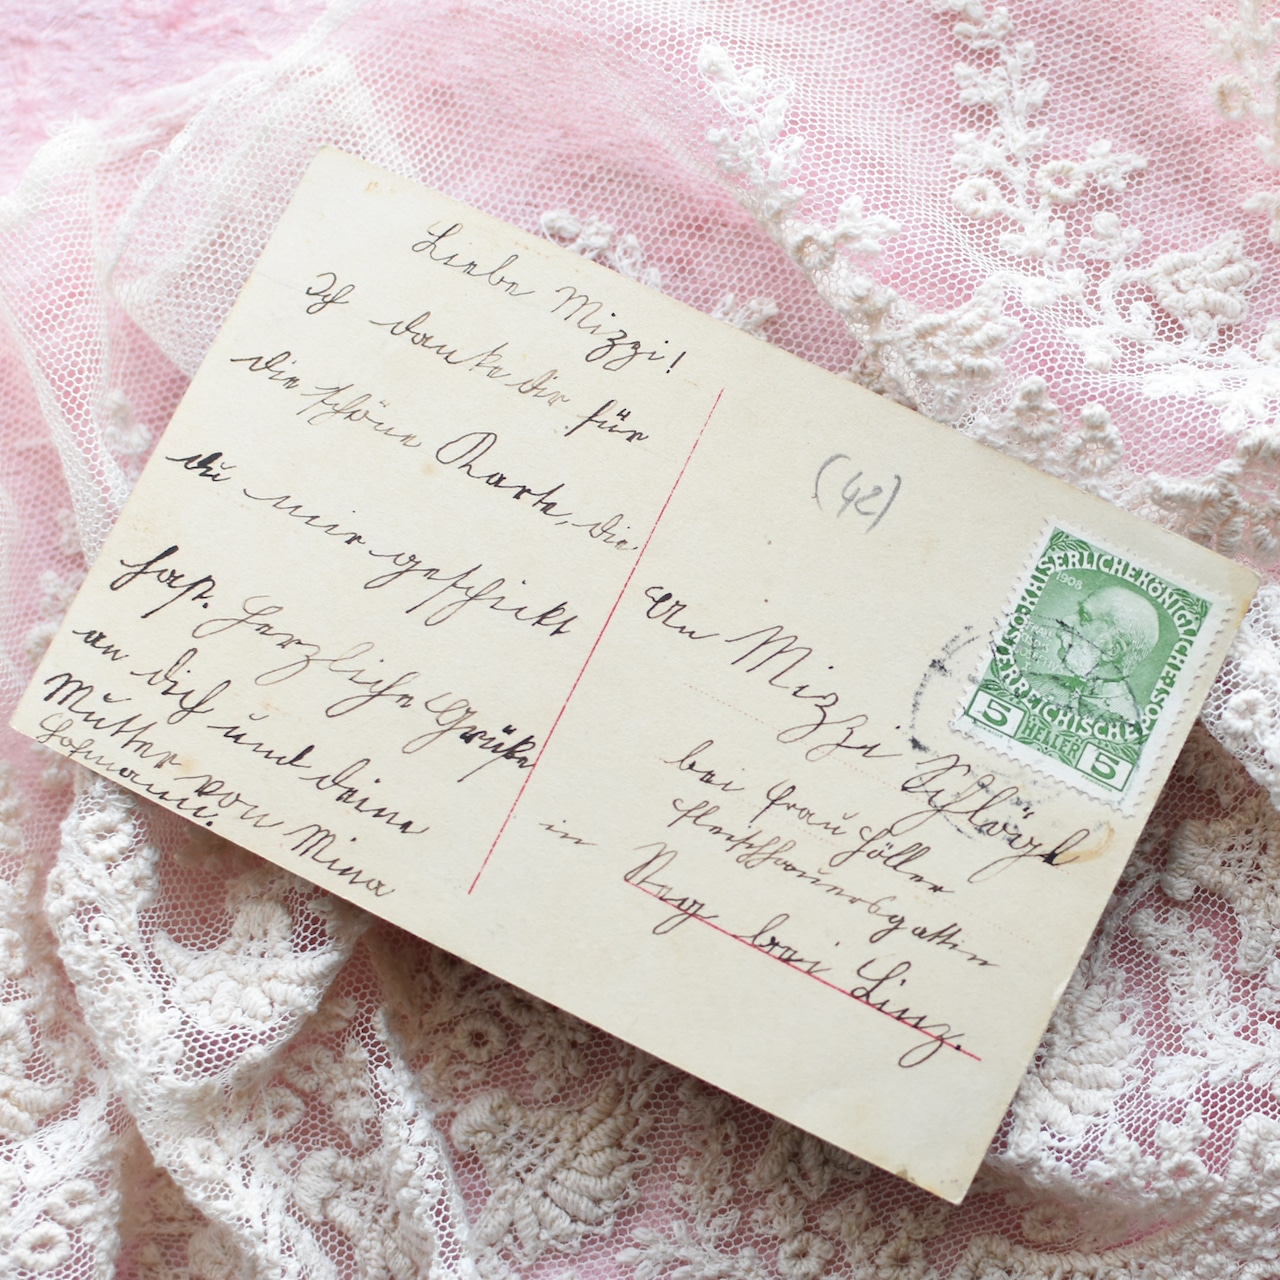 Liebe Mizzi!
Ich danke dir für
die schöne Karte, die
du mir geschickt
hast. Herzliche Grüße
an dich und deine
Mutter von Mina
Hofmann.
(42)
An Mizzi
bei Frau Höller
Fleischhauersgattin
in Steg bei Linz.
KAISERLICHEKÖNIGLICHE
ÖSTERREICHISCHE POST
1908
5 HELLER 5